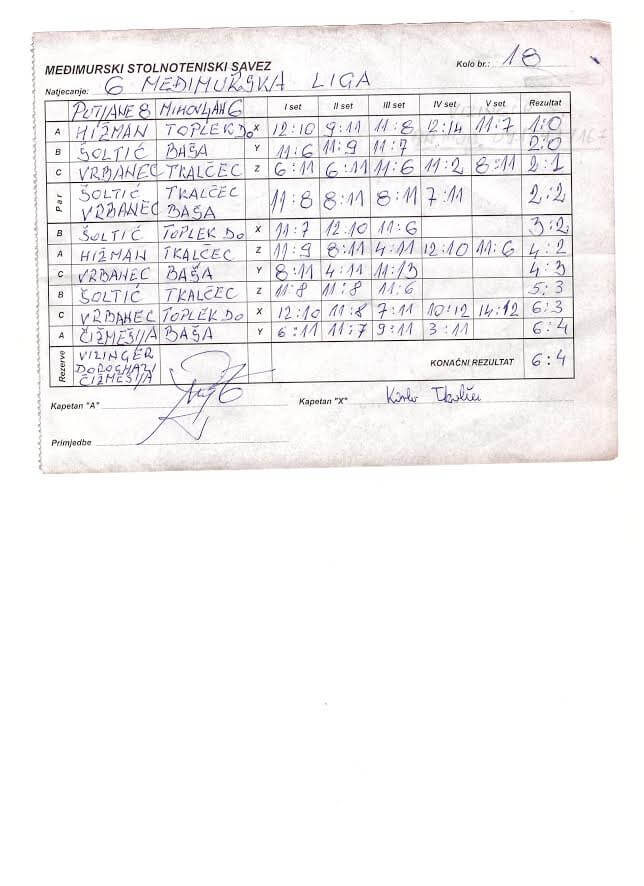 MEĐIMURSKI STOLNOTENISKI SAVEZ Kolo br.: 18
Natjecanje: 6 MEĐIMURSKA LIGA
PUTJANE 8 MIHOVLJAN 6 I set II set III set IV set V set Rezultat
A HIŽMAN TOPLEK DO X 12:10 9:11 11:8 12:14 11:7 1:0
B ŠOLTIĆ BAŠA Y 11:6 11:9 11:7 2:0
C VRBANEC TKALČEC Z 6:11 6:11 11:6 11:2 8:11 2:1
Par ŠOLTIĆ TKALČEC 11:8 8:11 8:11 7:11 2:2
VRBANEC BAŠA
B ŠOLTIĆ TOPLEK DO X 11:7 12:10 11:6 3:2
A HIŽMAN TKALČEC Z 11:9 8:11 4:11 12:10 11:6 4:2
C VRBANEC BAŠA Y 8:11 4:11 11:13 4:3
B ŠOLTIĆ TKALČEC Z 11:8 11:8 11:6 5:3
C VRBANEC TOPLEK DO X 12:10 11:8 7:11 10:12 14:12 6:3
A ČIŽMEŠIJA BAŠA Y 6:11 11:7 9:11 3:11 6:4
Rezerve VIZINGER
DOROGHAZI KONAČNI REZULTAT 6:4
ČIŽMEŠIJA
Kapetan "A" Kapetan "X"
Primjedbe